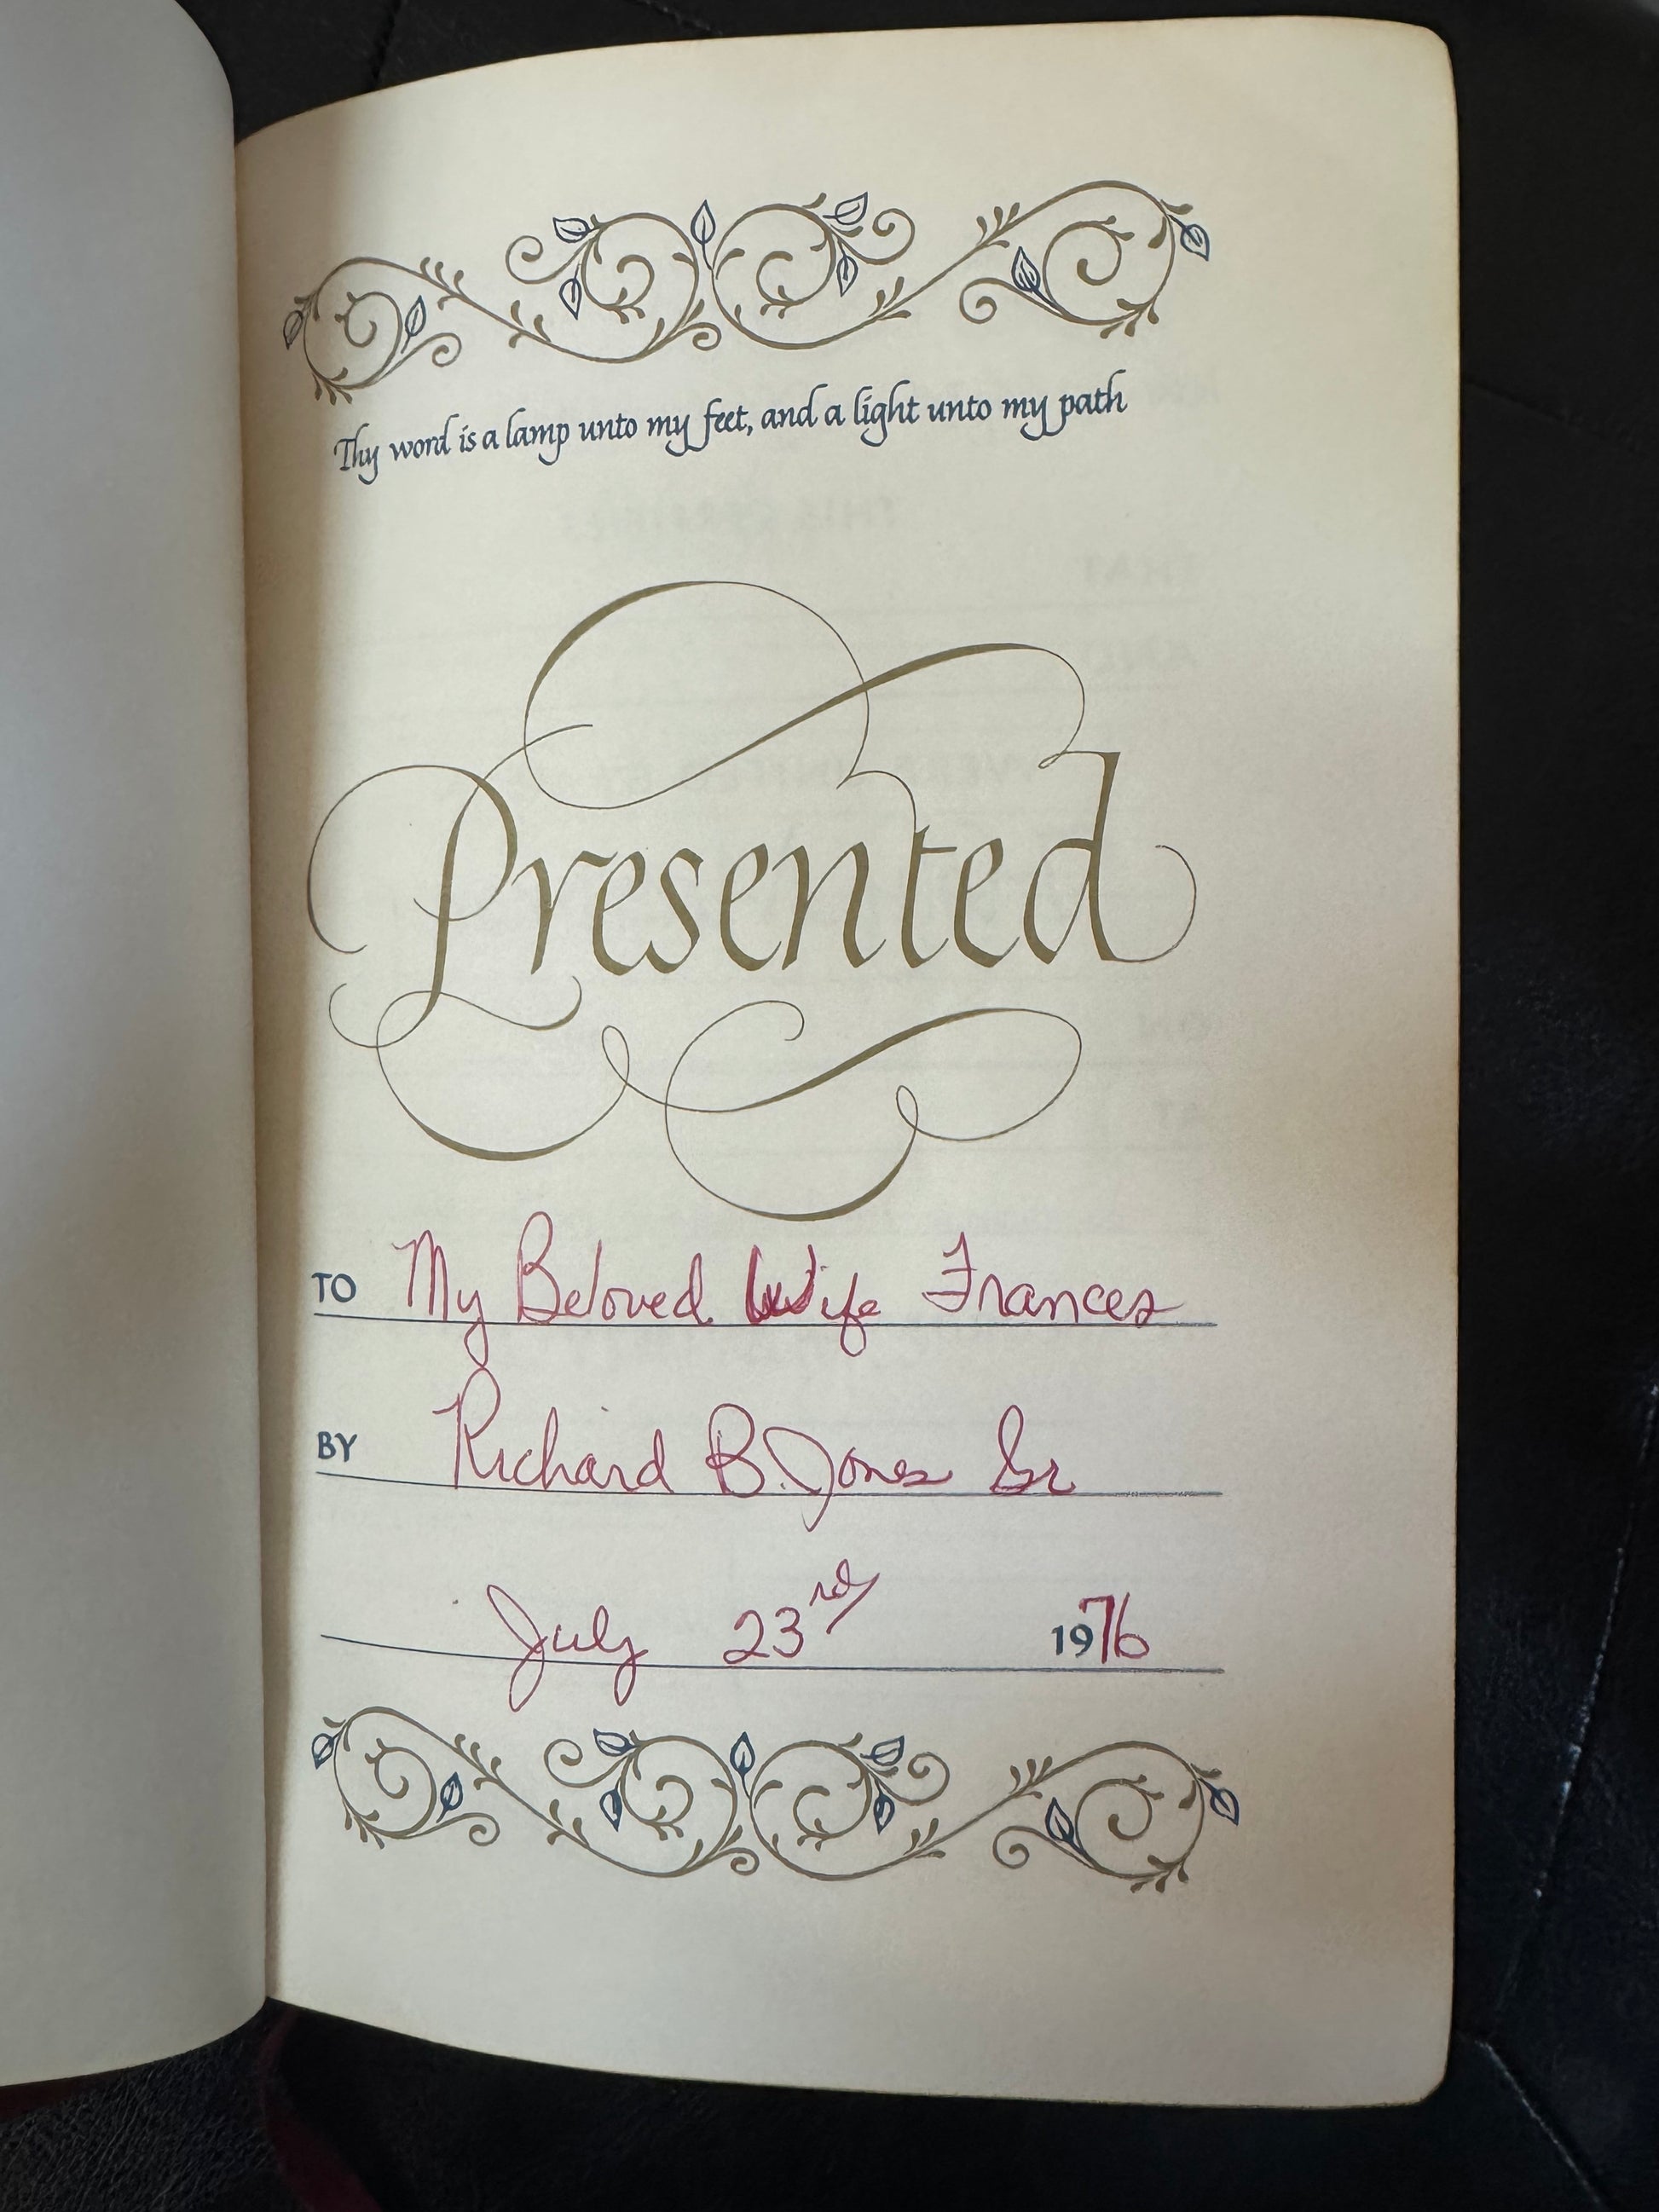 Thy word is a lamp unto my feet, and a light unto my path
Presented
TO My Beloved Wife Frances
BY Richard B. Jones Sr
July 23rd 1976